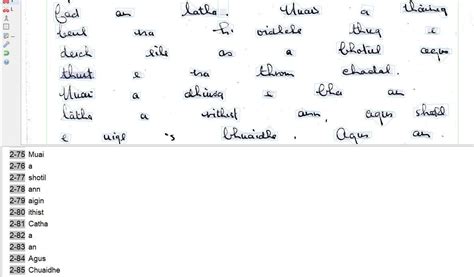 fad an latha. Muair a tháinig
beul na h-oidhche thug e
deoch eile as a bhotul agus
thuit e na throm chadal.
Muair a dhùisg e bha an
làtha a rithist ann, agus shaoil
e uige 's bhuaidhe. Agus an
2-75 Muai
2-76 a
2-77 shotil
2-78 ann
2-79 aigin
2-80 ithist
2-81 Catha
2-82 a
2-83 an
2-84 Agus
2-85 Chuaidhe